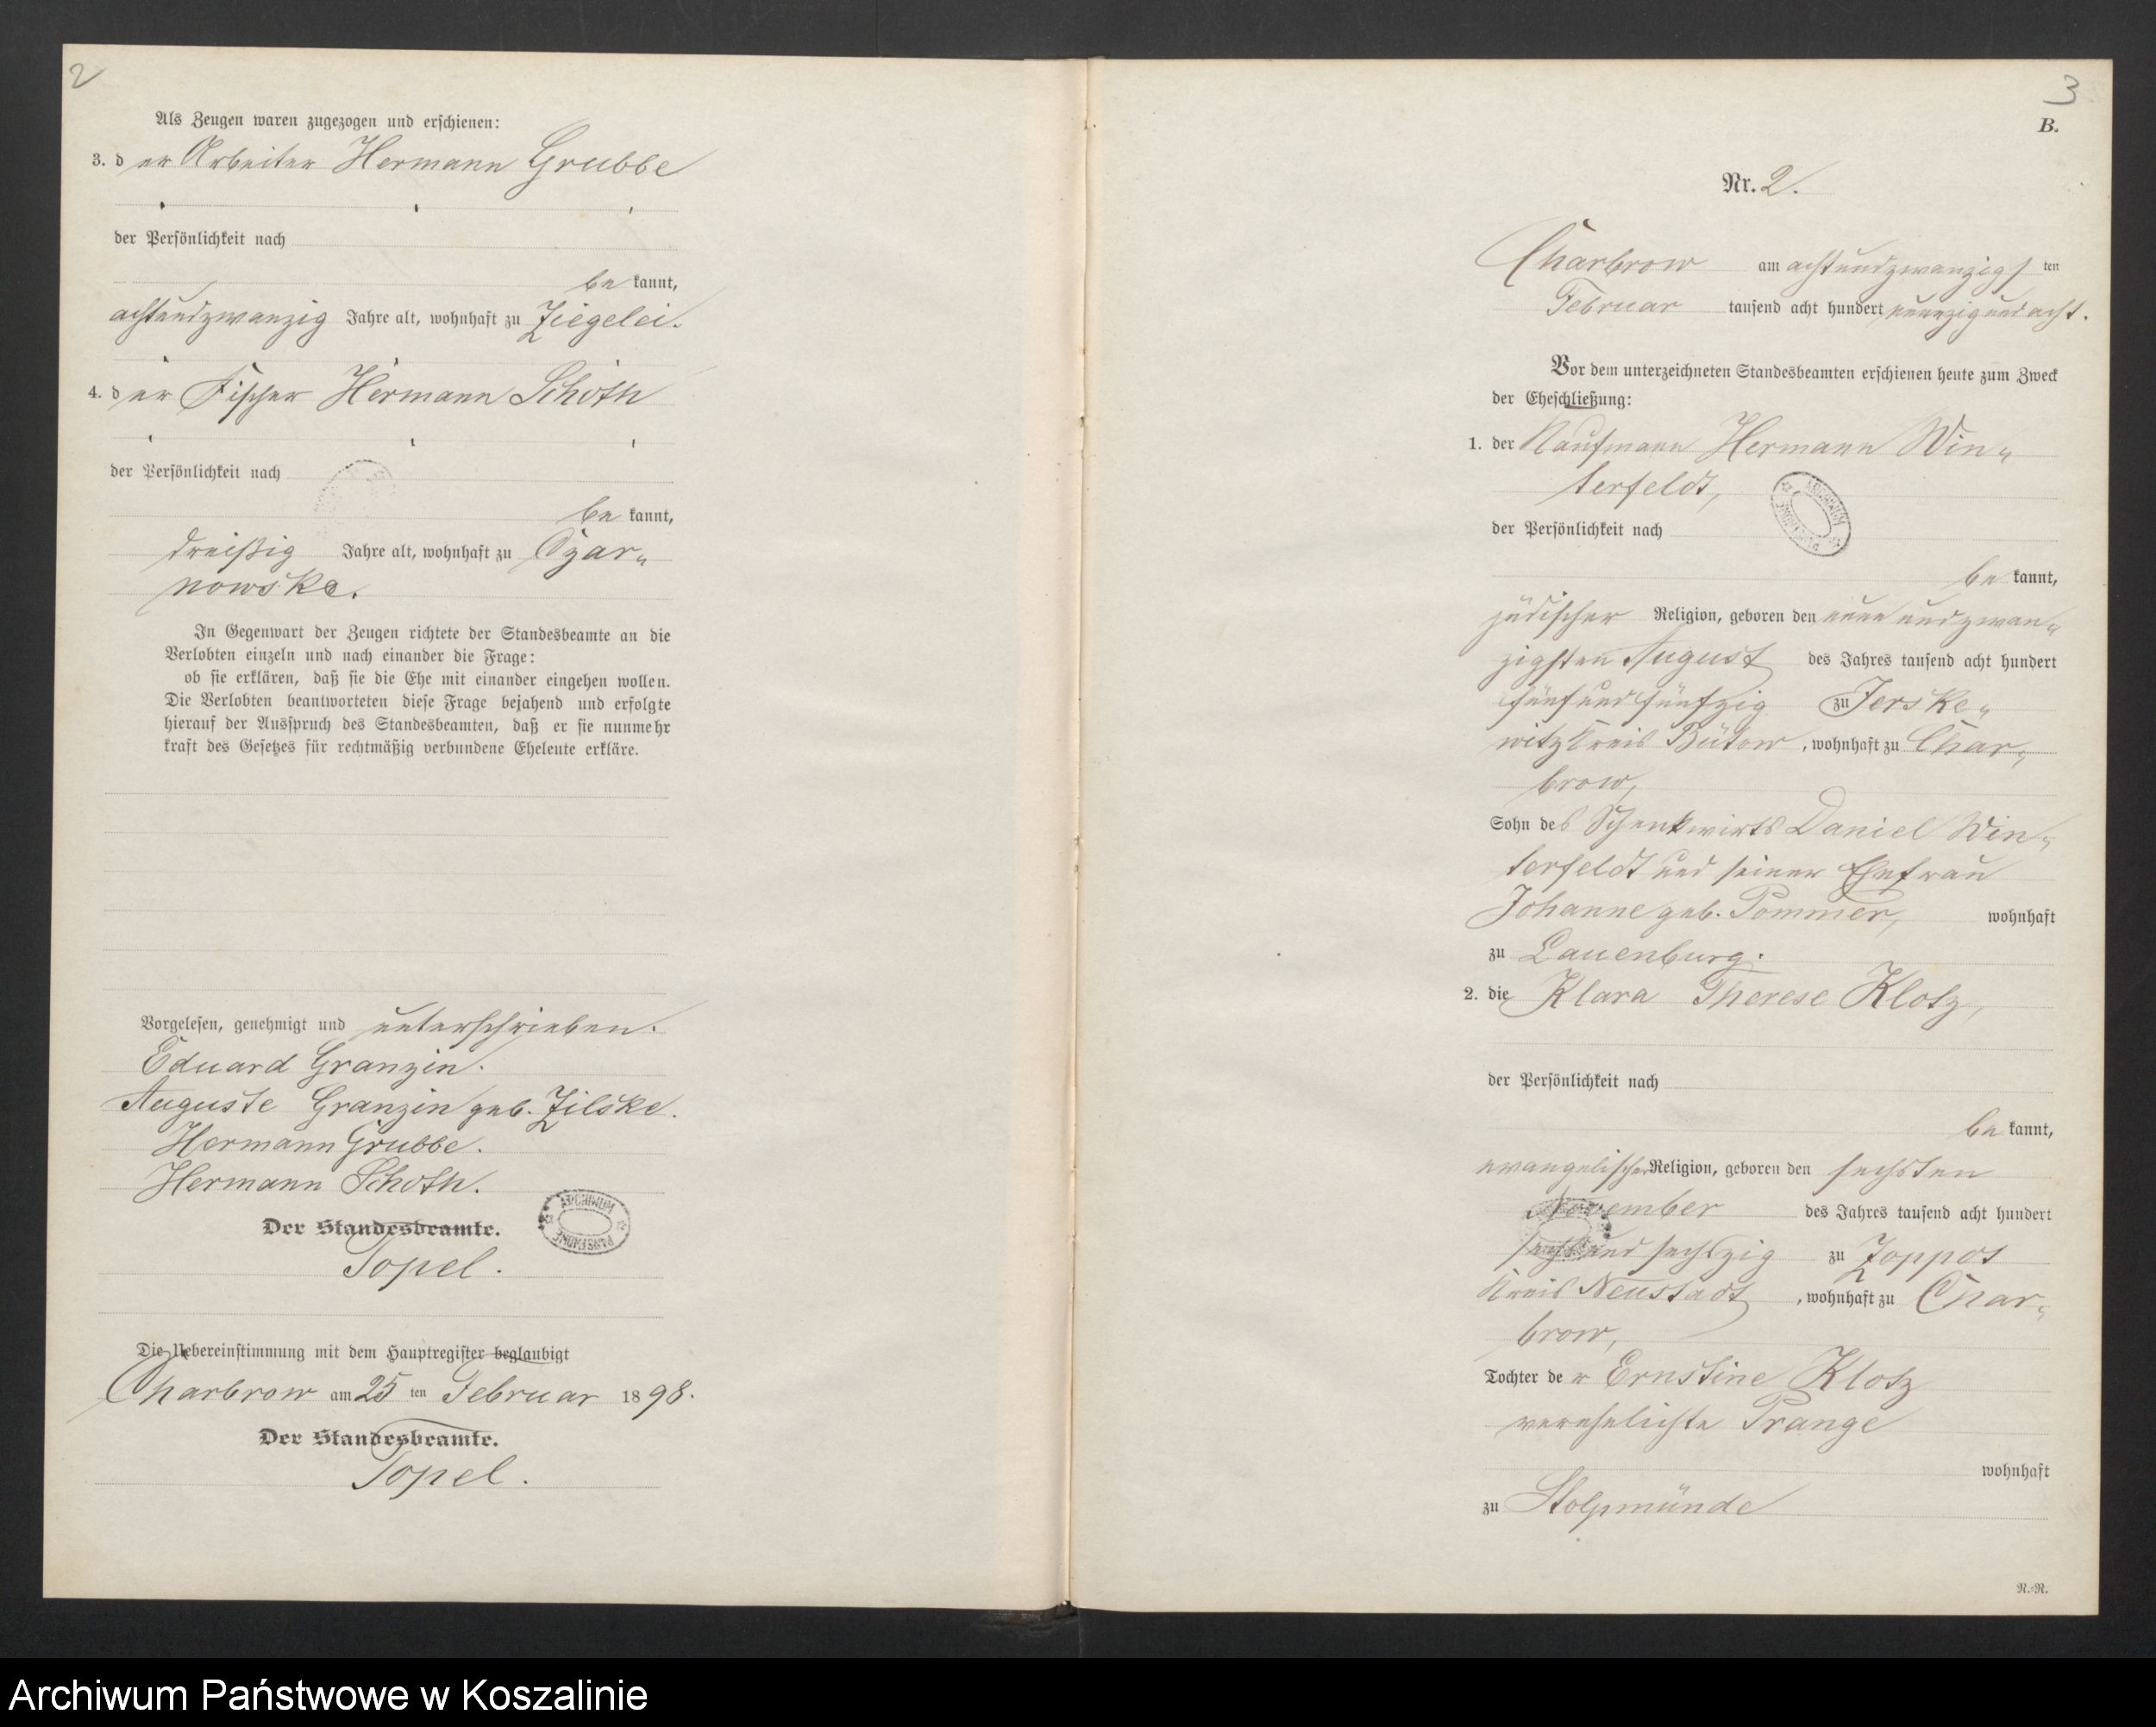 2
Als Zeugen waren zugezogen und erschienen:
3. der Arbeiter Hermann Grubbe
der Persönlichkeit nach
bekannt,
achtundzwanzig Jahre alt, wohnhaft zu Ziegelei.
4. der Fischer Hermann Schoth
der Persönlichkeit nach
bekannt,
dreißig Jahre alt, wohnhaft zu Czar-
nowske.
In Gegenwart der Zeugen richtete der Standesbeamte an die
Verlobten einzeln und nach einander die Frage:
ob sie erklären, daß sie die Ehe mit einander eingehen wollen.
Die Verlobten beantworteten diese Frage bejahend und erfolgte
hierauf der Ausspruch des Standesbeamten, daß er sie nunmehr
kraft des Gesetzes für rechtmäßig verbundene Eheleute erkläre.
Vorgelesen, genehmigt und unterschrieben.
Eduard Granzin.
Auguste Granzin geb. Zilske.
Hermann Grubbe.
Hermann Schoth.
ARCHIWUM PAŃSTWOWE
Der Standesbeamte.
Topel.
Die Uebereinstimmung mit dem Hauptregister beglaubigt
Charbrow am 25 ten Februar 1898.
Der Standesbeamte.
Topel.
3
B.
Nr. 2.
Charbrow am achtundzwanzigsten
Februar tausend acht hundert neunzig und acht.
Vor dem unterzeichneten Standesbeamten erschienen heute zum Zweck
der Eheschließung:
1. der Kaufmann Hermann Win-
terfeldt,
ARCHIWUM PAŃSTWOWE
der Persönlichkeit nach
bekannt,
jüdischer Religion, geboren den neun und zwan-
zigsten August des Jahres tausend acht hundert
fünf und fünfzig zu Jerske-
witz Kreis Bütow, wohnhaft zu Char-
brow,
Sohn des Schenkwirts Daniel Win-
terfeldt und seiner Ehefrau
Johanne geb. Pommer, wohnhaft
zu Lauenburg.
2. die Klara Therese Klotz,
der Persönlichkeit nach
bekannt,
evangelischer Religion, geboren den sechsten
November des Jahres tausend acht hundert
und sechszig zu Zoppot
Kreis Neustadt, wohnhaft zu Char-
brow,
Tochter der Ernstine Klotz
verehelichte Prange
wohnhaft
zu Stolpmünde
R.-R.
Archiwum Państwowe w Koszalinie